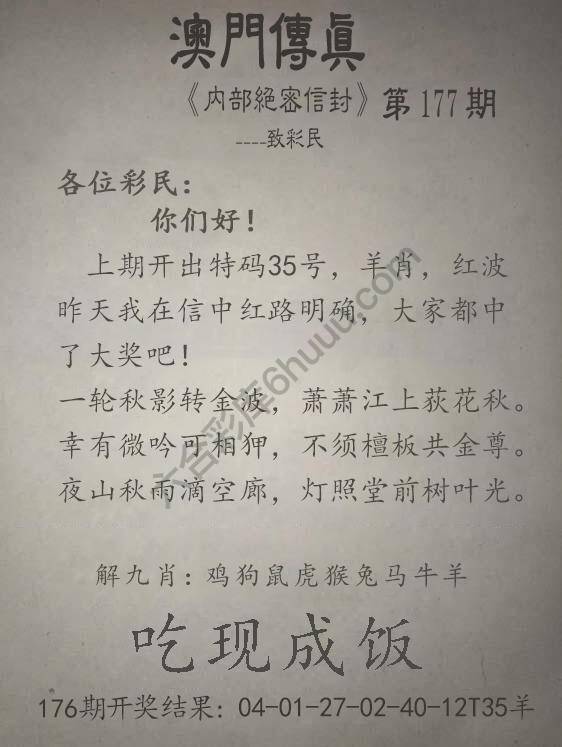 澳門傳眞
《内部絕密信封》第177期
----致彩民
各位彩民：
你们好！
上期开出特码35号，羊肖，红波
昨天我在信中红路明确，大家都中
了大奖吧！
一轮秋影转金波，萧萧江上荻花秋。
幸有微吟可相狎，不须檀板共金尊。
夜山秋雨滴空廊，灯照堂前树叶光。
解九肖：鸡狗鼠虎猴兔马牛羊
吃现成饭
176期开奖结果：04-01-27-02-40-12T35羊
六合彩库6huuu.com